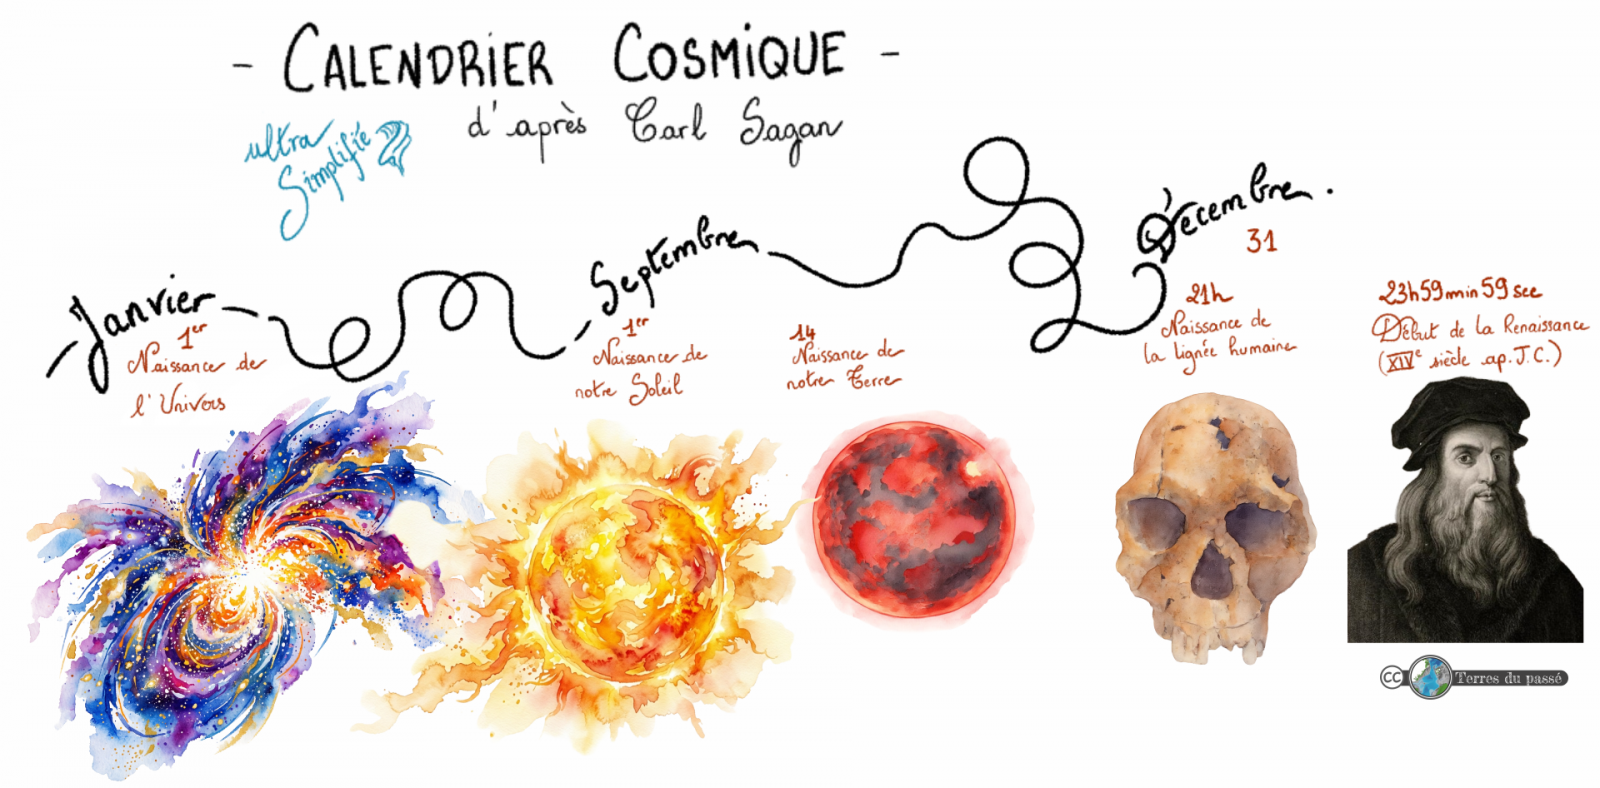 - CALENDRIER COSMIQUE -
d'après Carl Sagan
ultra
Simplifié
Janvier
1er
Naissance de
l'Univers
Septembre
1er
Naissance de
notre Soleil
14
Naissance de
notre Terre
Décembre.
31
21h
Naissance de
la lignée humaine
23h59min59sec
Début de la Renaissance
(XIVe siècle ap. J.C.)
cc Terres du passé